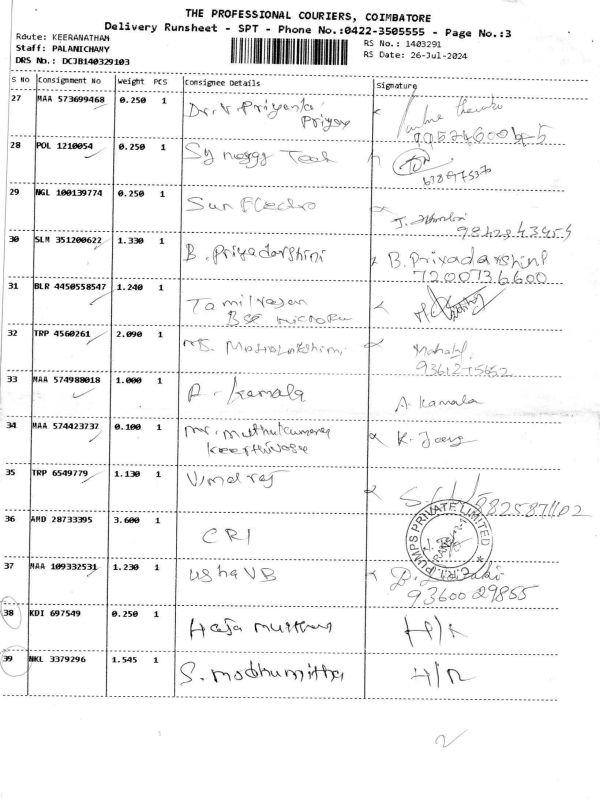 THE PROFESSIONAL COURIERS, COIMBATORE
Delivery Runsheet - SPT - Phone No.:0422-3505555 - Page No.:3
Route: KEERANATHAM
Staff: PALANICHAMY
DRS No.: DCJB140329103
RS No.: 1403291
RS Date: 26-Jul-2024
S No Consignment No Weight PCS Consignee Details Signature
27 MAA 573699468 0.250 1 Dr. V. Priyanka
Priya
28 POL 1210054 0.250 1 Synergy Tech
29 NGL 100139774 0.250 1 Sun Electro
30 SLM 351200622 1.330 1 B. Priyadarshini B. Priyadarshini
7200736600
31 BLR 4450558547 1.240 1 Tamilrasan
32 TRP 4560261 2.090 1
33 MAA 574980018 1.000 1 A. Kamala A. Kamala
34 MAA 574423737 0.100 1 Mr. Muthukumaran
35 TRP 6549779 1.130 1 Vimal raj
36 AMD 28733395 3.600 1 CRI
PUMPS PRIVATE LIMITED
C.R.I.
37 MAA 109332531 1.230 1 Usha VB
9360029855
38 KDI 697549 0.250 1 H/R
39 NKL 3379296 1.545 1 S. Madhumitha H/R
2